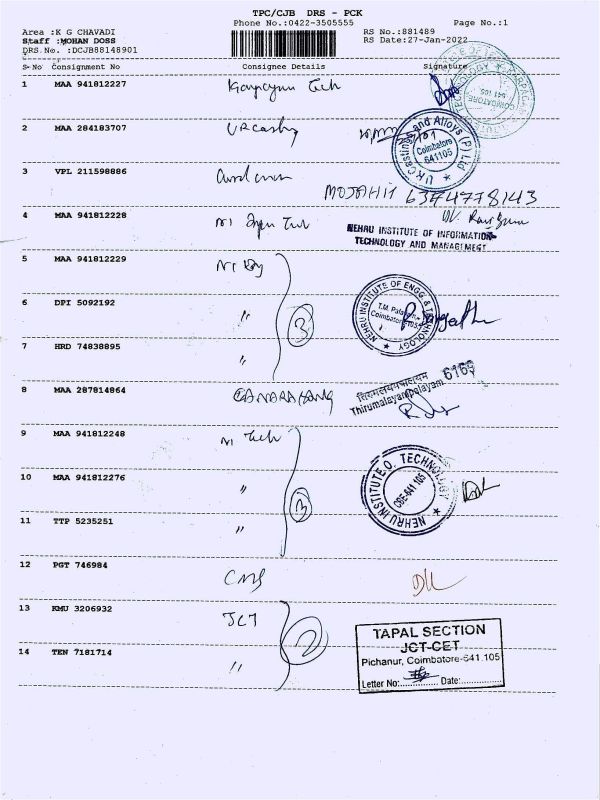 TPC/CJB DRS - PCK
Phone No.:0422-3505555
Page No.:1
Area :K G CHAVADI
RS No.:881489
Staff :MOHAN DOSS
RS Date:27-Jan-2022
DRS.No. :DCJB88148901
S-No Consignment No Consignee Details Signature
1 MAA 941812227 Tech
COIMBATORE
641 105
2 MAA 284183707
U.K Castings and Alloys (P) Ltd
Coimbatore
641105
3 VPL 211598886
MOJAHIT 6374778143
4 MAA 941812228
NEHRU INSTITUTE OF INFORMATION
TECHNOLOGY AND MANAGEMENT
5 MAA 941812229
NEHRU INSTITUTE OF ENGG. & TECHNOLOGY
6 DPI 5092192 〃 3
7 HRD 74838895 〃
8 MAA 287814864
तिरुमलयमपालयम 6169
Thirumalayampalayam
9 MAA 941812248 NI Tech
NEHRU INSTITUTE O. TECHNOLOGY
CBE-641 105
10 MAA 941812276 〃 3
11 TTP 5235251 〃
12 PGT 746984 CMS
13 KMU 3206932 JCT
2
14 TEN 7181714 〃
TAPAL SECTION
JCT-CET
Pichanur, Coimbatore-641.105
Letter No: Date: